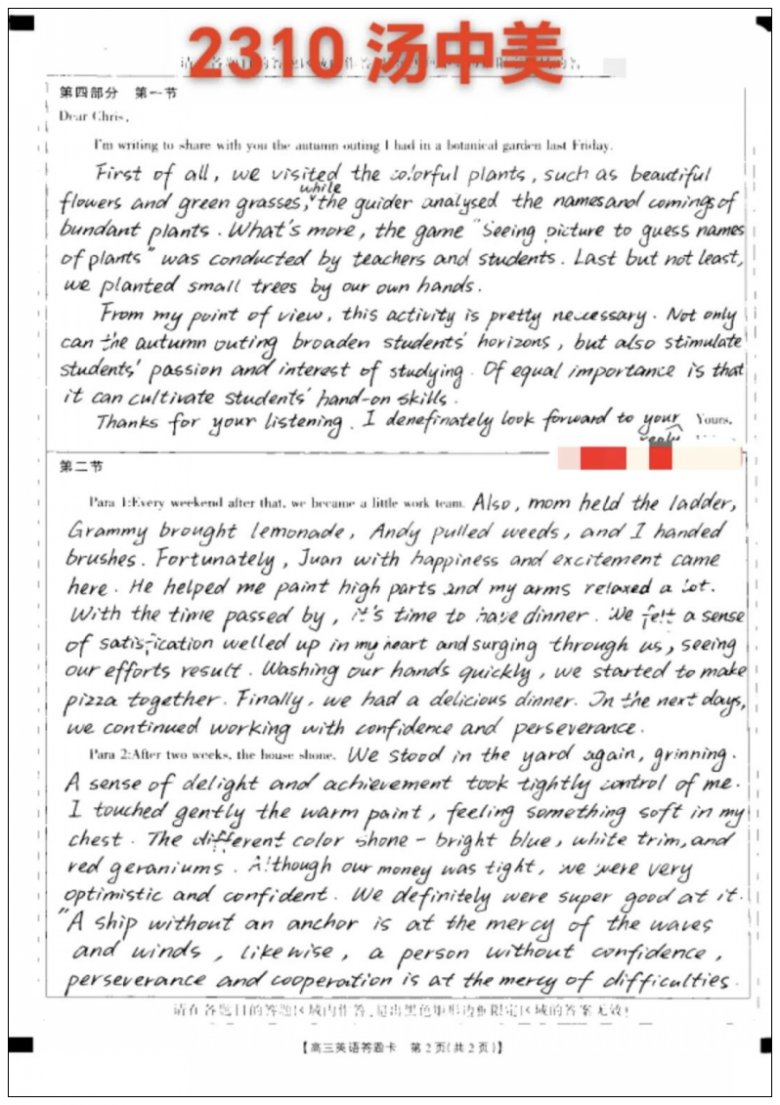 2310 汤中美
第四部分 第一节
Dear Chris,
I'm writing to share with you the autumn outing I had in a botanical garden last Friday.
First of all, we visited the colorful plants, such as beautiful
while
flowers and green grasses, the guider analysed the names and comings of
bundant plants. What's more, the game "Seeing picture to guess names
of plants" was conducted by teachers and students. Last but not least,
we planted small trees by our own hands.
From my point of view, this activity is pretty necessary. Not only
can the autumn outing broaden students' horizons, but also stimulate
students' passion and interest of studying. Of equal importance is that
it can cultivate students' hand-on skills.
Thanks for your listening. I denefinately look forward to your Yours,
第二节
Para 1:Every weekend after that, we became a little work team. Also, mom held the ladder,
Grammy brought lemonade, Andy pulled weeds, and I handed
brushes. Fortunately, Juan with happiness and excitement came
here. He helped me paint high parts and my arms relaxed a lot.
With the time passed by, it's time to have dinner. We felt a sense
of satisfication welled up in my heart and surging through us, seeing
our efforts result. Washing our hands quickly, we started to make
pizza together. Finally, we had a delicious dinner. In the next days,
we continued working with confidence and perseverance.
Para 2:After two weeks, the house shone. We stood in the yard again, grinning.
A sense of delight and achievement took tightly control of me.
I touched gently the warm paint, feeling something soft in my
chest. The different color shone - bright blue, white trim, and
red geraniums. Although our money was tight, we were very
optimistic and confident. We definitely were super good at it.
"A ship without an anchor is at the mercy of the waves
and winds, likewise, a person without confidence,
perseverance and cooperation is at the mercy of difficulties.
请在各题目的答题区域内作答,超出黑色矩形边框限定区域的答案无效!
【高三英语答题卡 第2页(共2页)】